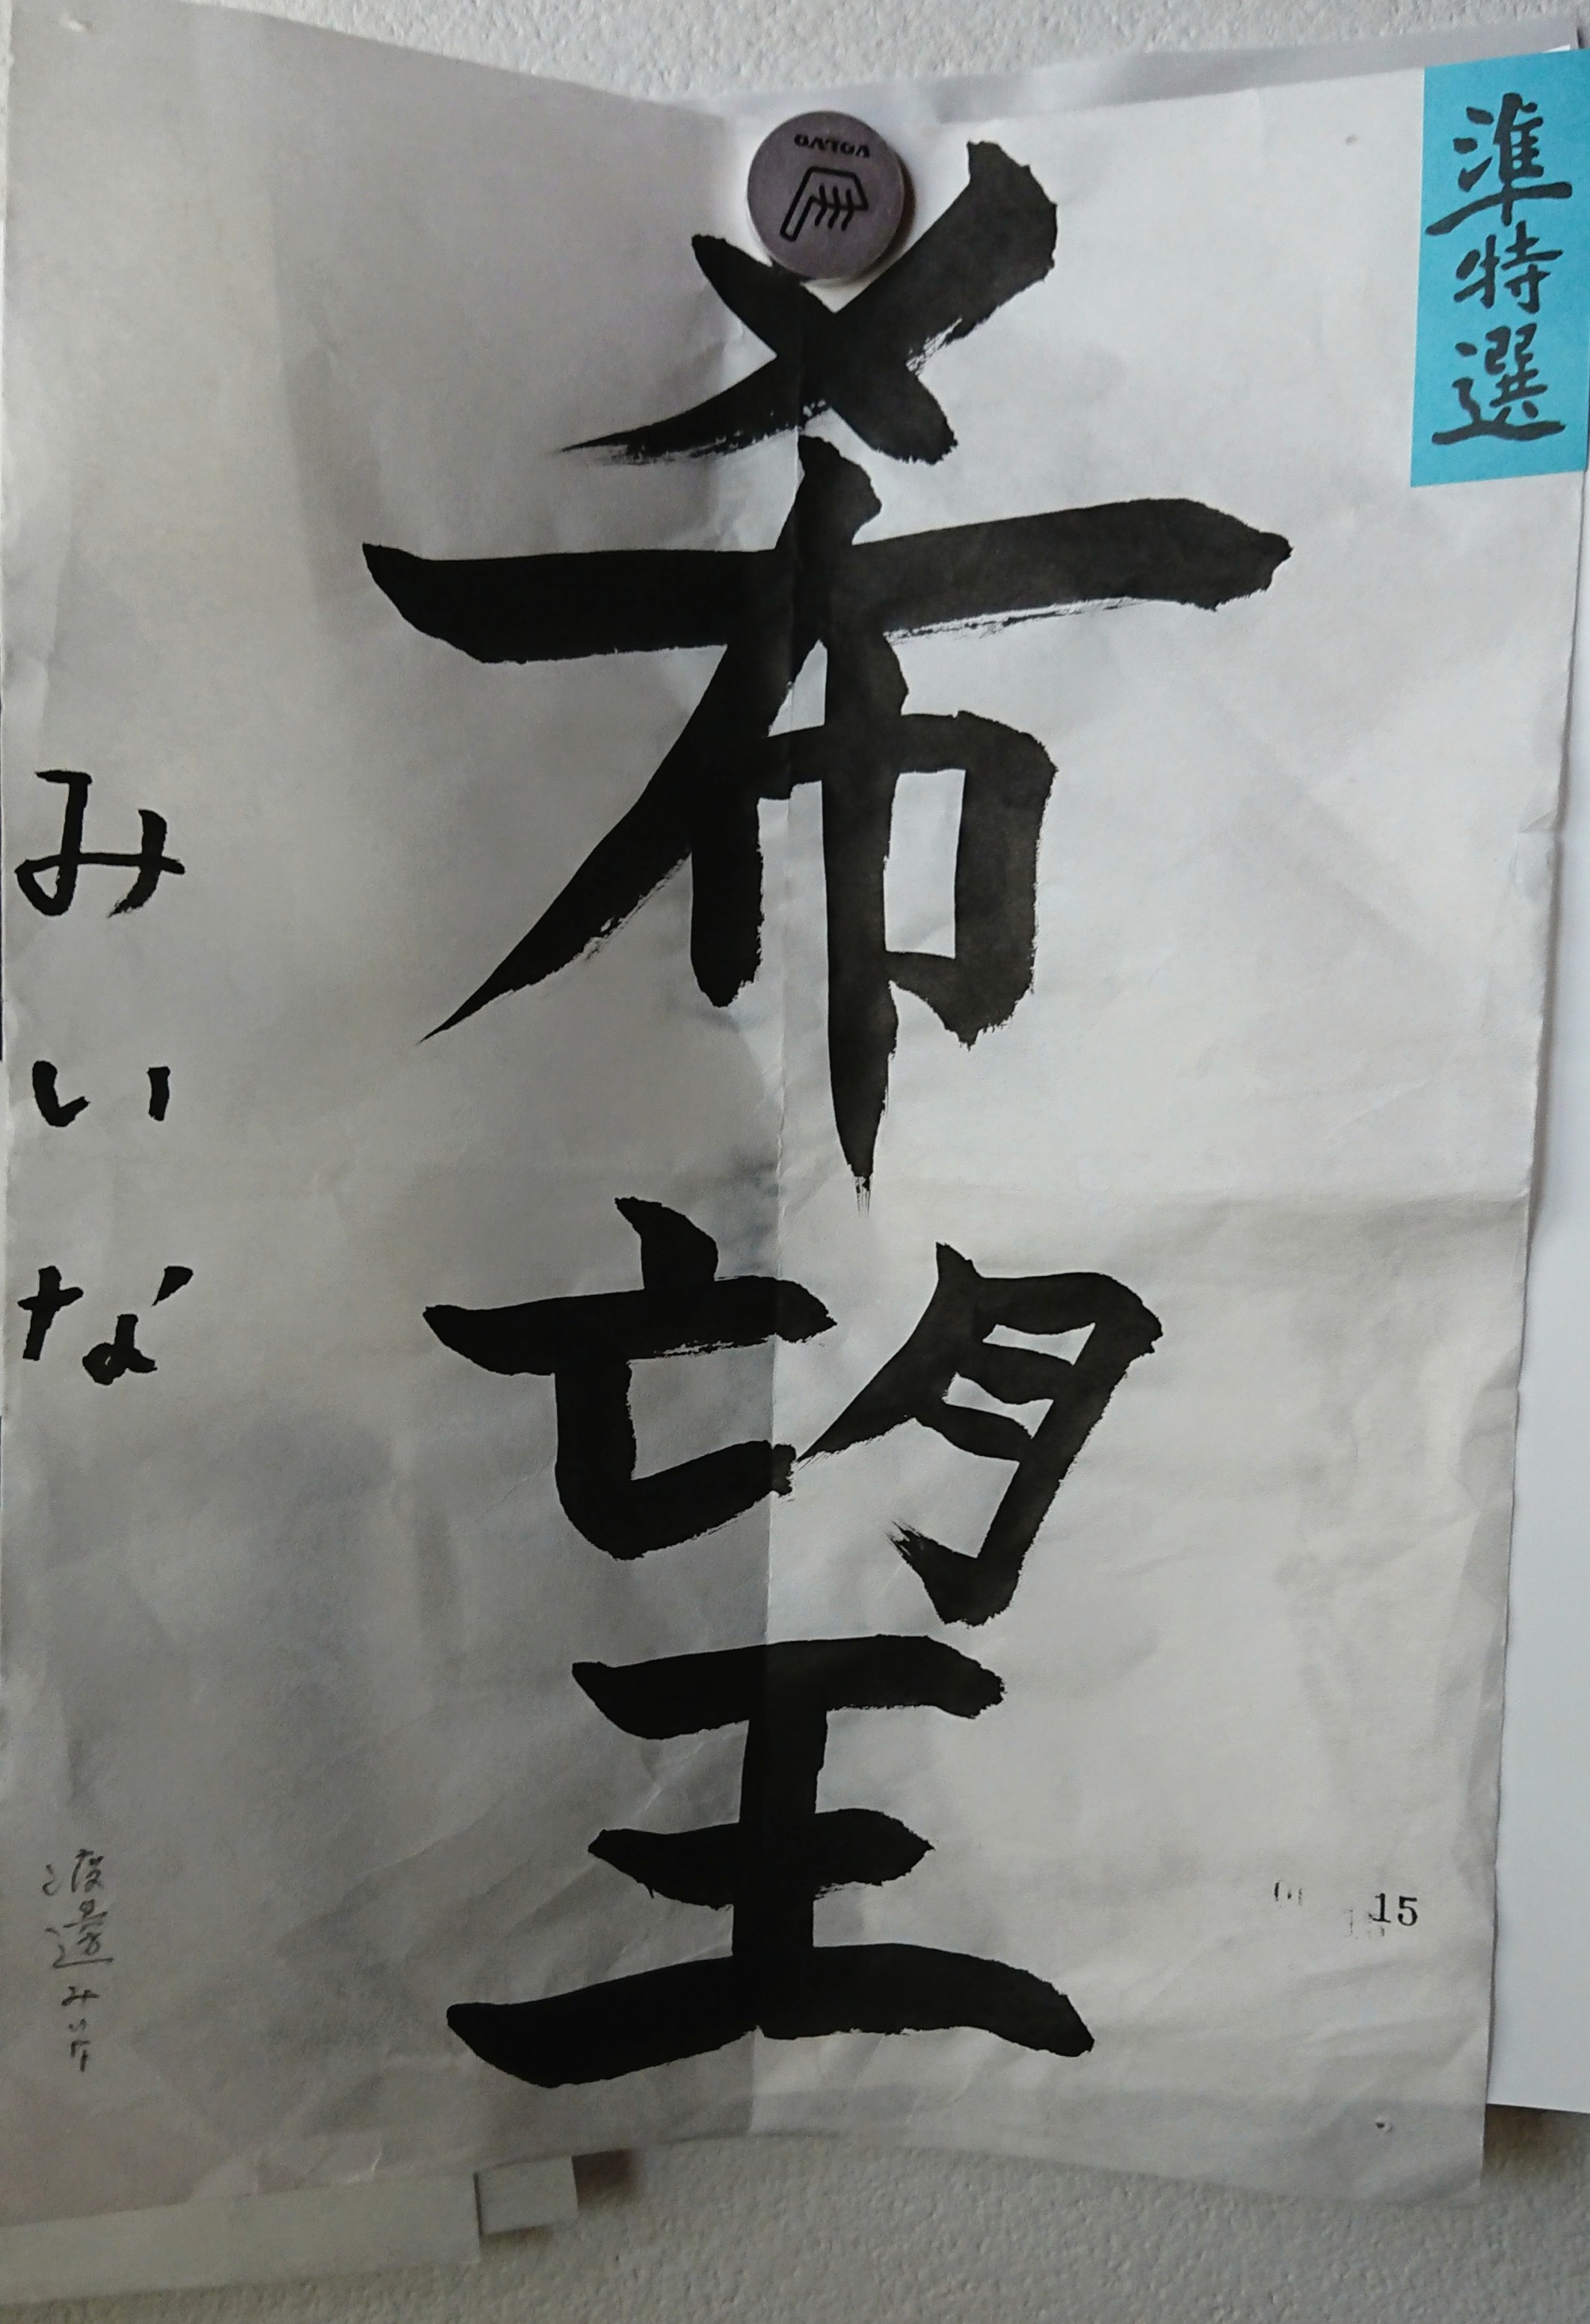 準特選
希望
みいな
渡邊みいな
15
VOLVO